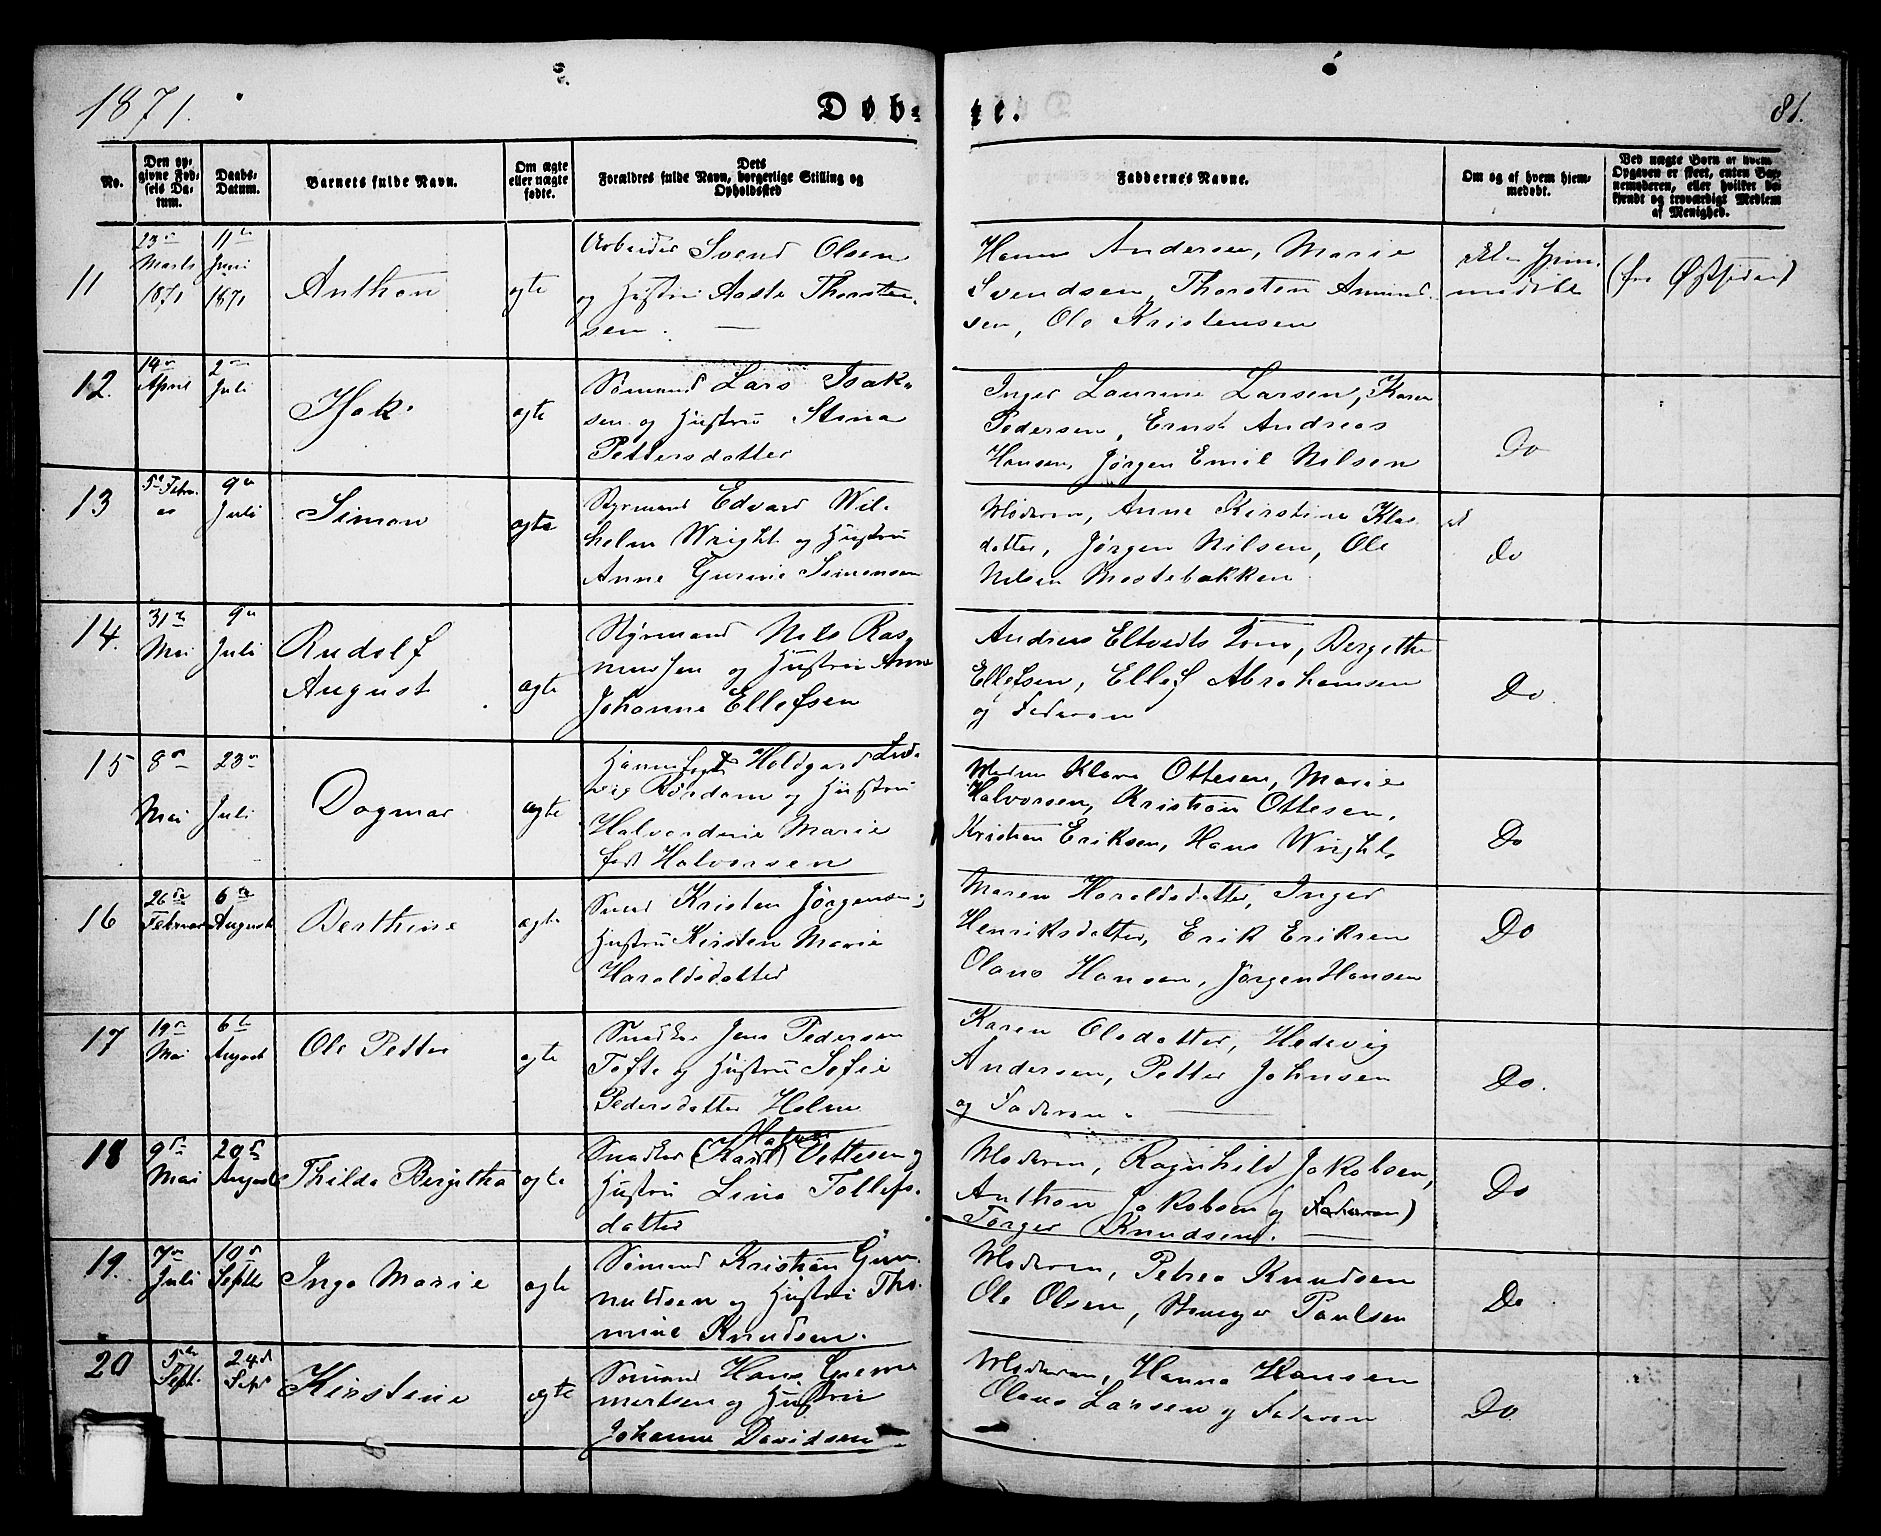 1871.
Døb-
te.
81.
No.
Den op-
givne Fød-
sels Da-
tum.
Daabs-
Datum.
Barnets fulde Navn.
Om ægte
eller uægte
fødte.
Dets
Forældres fulde Navn, borgerlige Stilling og
Opholdssted
Faddernes Navne.
Om og af hvem hjem-
medøbt.
Ved uægte Børn af hvem
Opgaven er skeet, enten Bar-
nemoderen, eller hvilket be-
kjendt og troværdigt Medlem
af Menighed.
11
23
Marts
1871
11te
Juni
1871
Anthon
ægte
Arbeider Svend Olsen
og Hustru Aaste Thorsten-
sen.
Hans Andersen, Marie
Svendsen, Thorsten Amund-
sen, Ole Kristensen
ikke hjem-
medøbt
12.
14
April
2
Juli
Isak.
ægte
Sømand Lars Isak-
sen og Hustru Stina
Pettersdatter
Inger Laurine Larsen, Karen
Pedersen, Ernst Andreas
Hansen, Jørgen Emil Nilsen
Do
13
5 Febru-
ar
9
Juli
Simon
ægte
Styrmand Edvard Wil-
helm Wright og Hustru
Anne Gurine Simensen
Moderen, Anne Kirstine Klas-
datter, Jørgen Nilsen, Ole
Nilsen
Do
14.
31te
Mai
9
Juli
Rudolf
August
ægte
Styrmand Nils Ras-
mussen og Hustru Anne
Johanne Ellefsen
Andreas Bergithe
Ellefsen, Ellef Abrahamsen
og Faderen
Do.
15
8
Mai
23
Juli
Dagmar
ægte
Havnefogd Holdgard Lud-
vig Rørdam og Hustru
Halvordine Marie
født Halvorsen
Klara Ottesen, Marie
Halvorsen, Kristian Ottesen,
Kristian Eriksen, Hans Wright.
Do
16
26de
Februar
6te
August
Berthine
ægte
Kristen Jørgensen,
Hustru Kirsten Marie
Haraldsdatter
Maren Haraldsdatter, Inger
Henriksdatter, Erik Eriksen
Olaus Hansen, Jørgen Hansen
Do
17
19
Mai
6te
August
Ole Petter
ægte
Snedker Jens Pedersen
Tofte og Hustru Sofie
Pedersdatter Holm
Karen Olsdatter, Hedevig
Andersen, Petter Johnsen
og Faderen.
Do.
18
9de
Mai
20de
August
Thilda Bergitha
ægte
Snedker Vettesen og
Hustru Lina Tollefs-
datter
Moderen, Ragnhild Jakobsen,
Anthon Jakobsen og Faderen)
Torger Knudsen.
Do
19.
7
Juli
10
Septbr
Inga Marie
ægte
Sømand Kristian Gun-
nuldsen og Hustru Tho-
mine Knudsen.
Moderen, Petrea Knudsen
Ole Olsen, Paulsen
Do
20
5te
Sept.
24de
Sept
Kirstine
ægte
Sømand Hans Gum-
mertsen og Hustru
Johanne Davidsen
Moderen, Hanna Hansen
Olaus Larsen og Faderen
Do